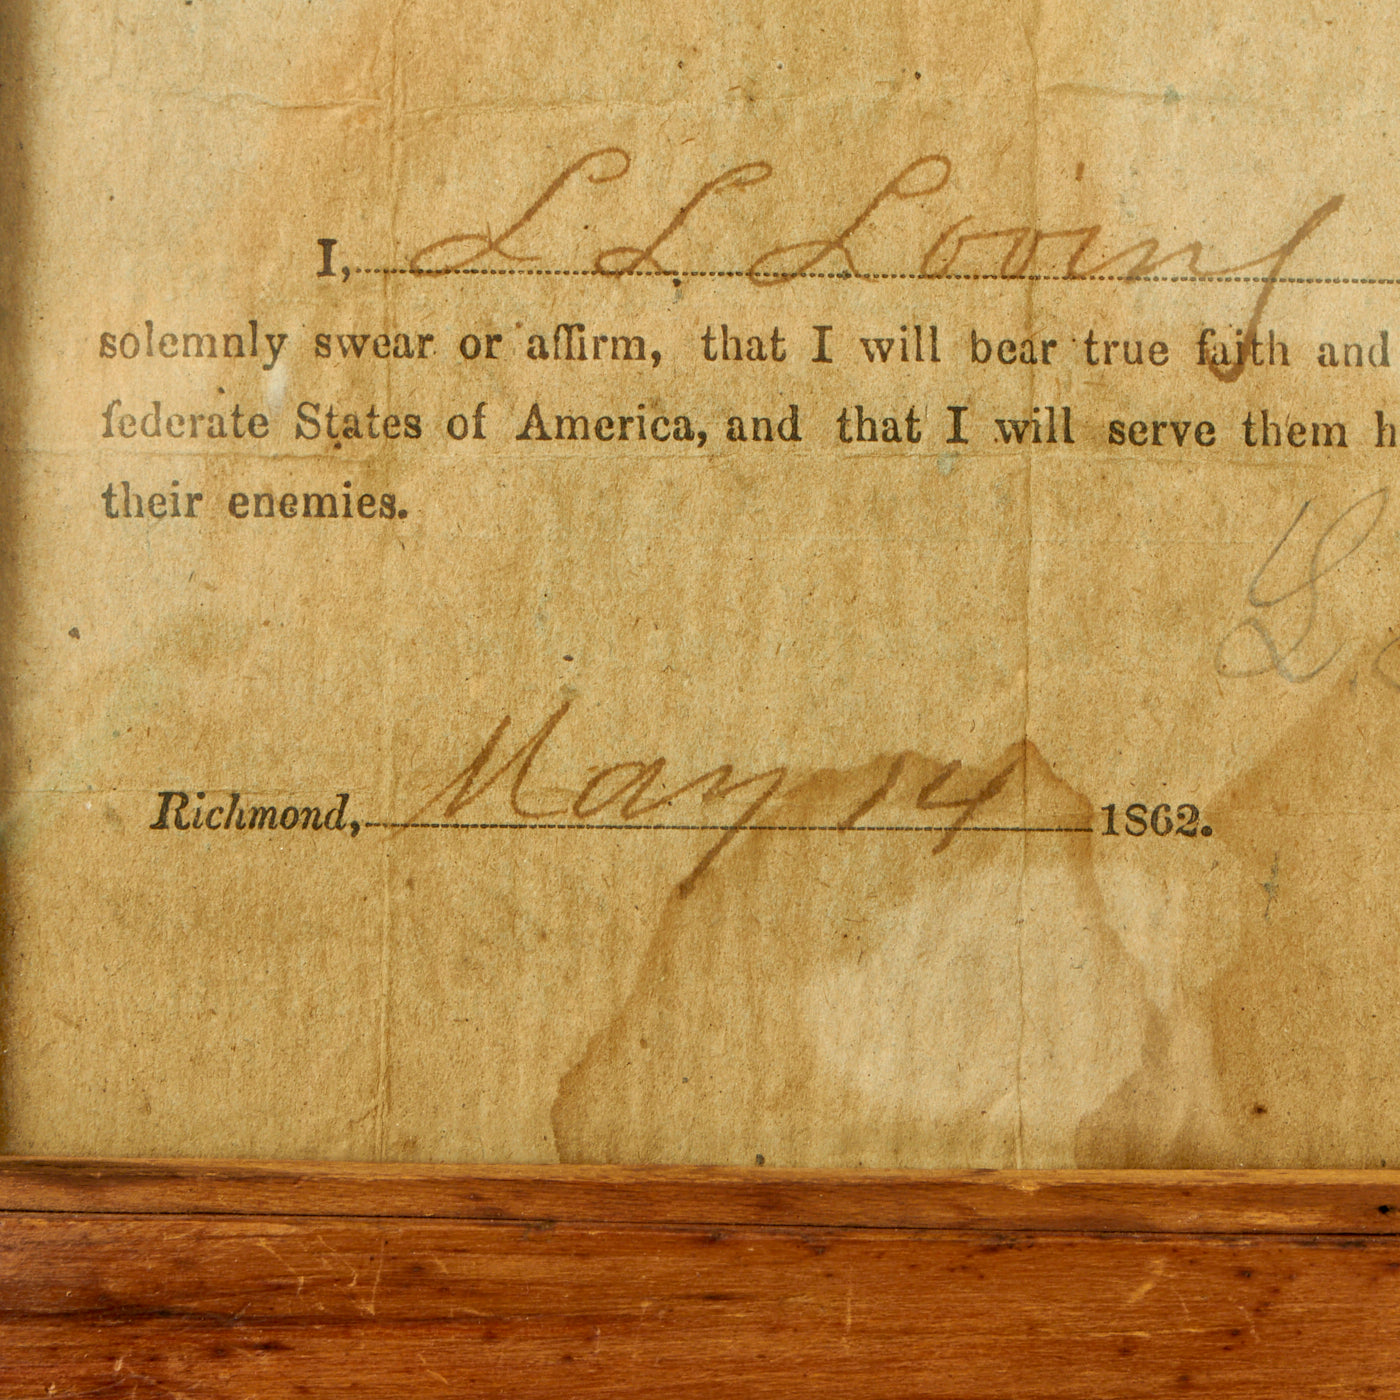 I, L L Loving
solemnly swear or affirm, that I will bear true faith and
federate States of America, and that I will serve them h
their enemies.
L.
Richmond, May 14 1862.